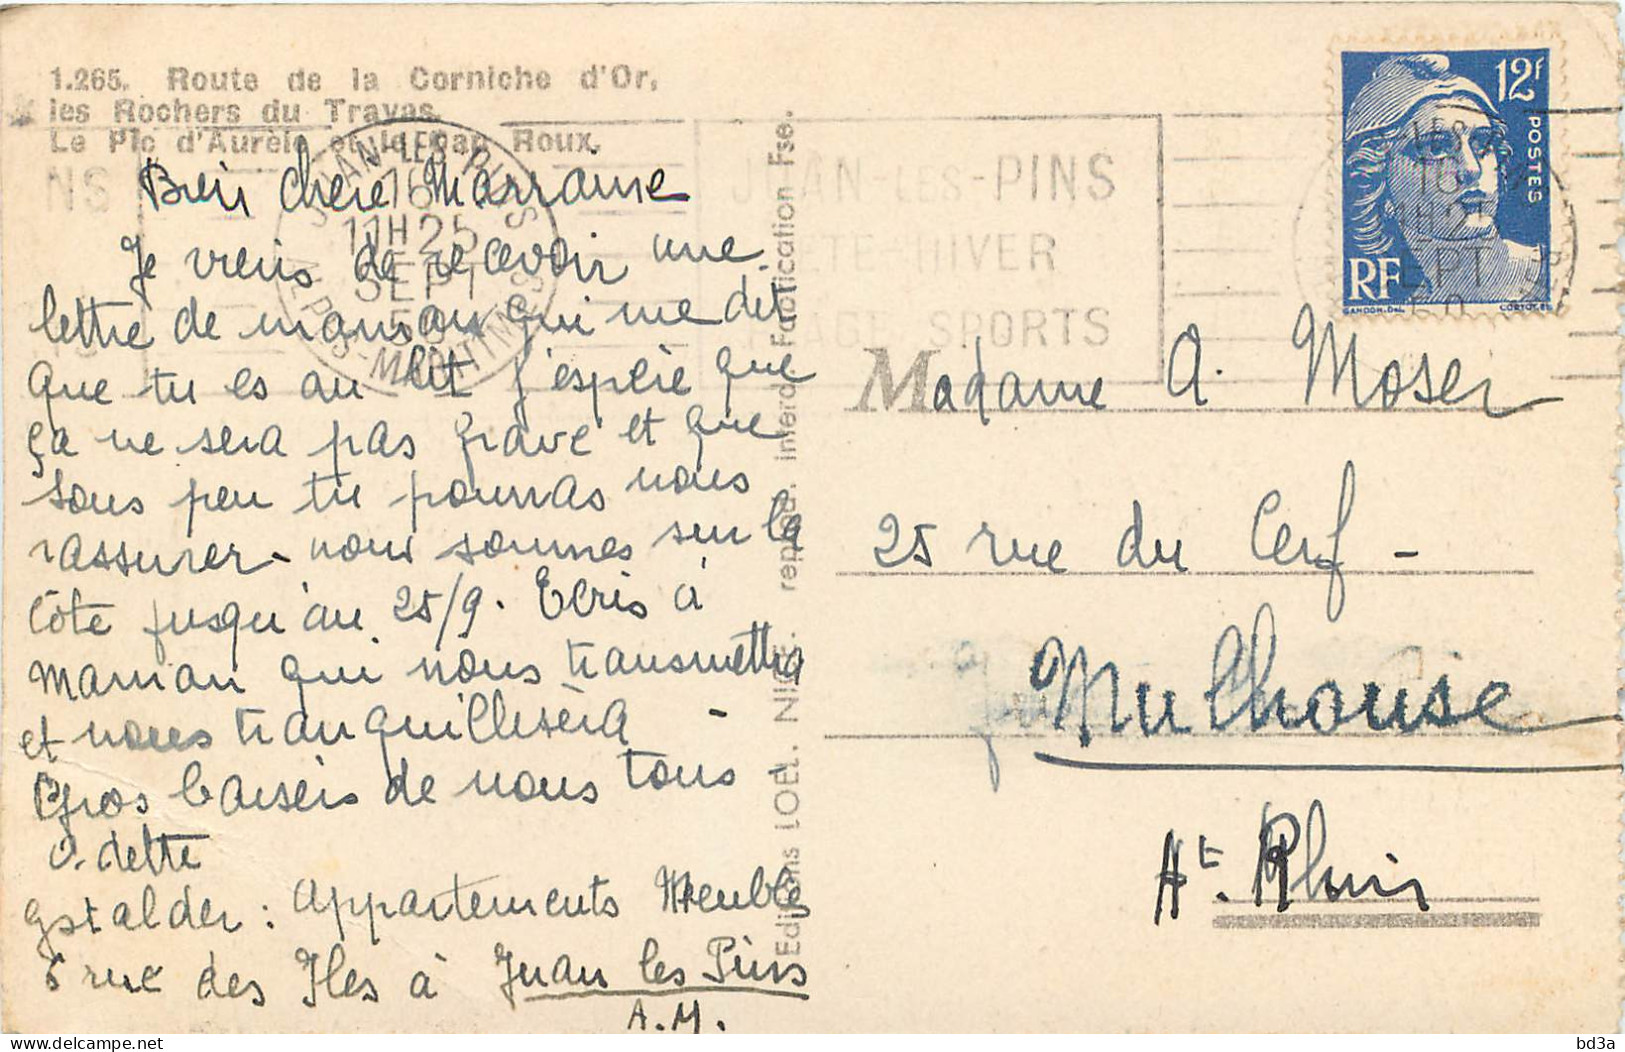 1.265. Route de la Corniche d'Or,
les Rochers du Trayas.
Le Pic d'Aurèle et le Cap Roux.
Bien chère Marraine
Je viens de recevoir une
lettre de maman qui me dit
que tu es au lit j'espère que
ça ne sera pas grave et que
sous peu tu pourras nous
rassurer - nous sommes sur la
côte jusqu'au 25/9. Ecris à
Maman qui nous transmettra
et nous tranquillisera -
Gros baisers de nous tous -
Odette
Gstalder : Appartements Meublés
6 rue des Iles à Juan les Pins
A.M.
Editions LOEL. NICE. reprod. interd. Fabrication Fse.
JUAN-LES-PINS
16
11H25
SEPT
50
ALPES-MARITIMES
NS
JUAN-LES-PINS
ETE-HIVER
PLAGE SPORTS
12F
POSTES
RF
GANDON.DEL
CORTOT.SC
Madame A. Moser
25 rue du Cerf -
Mulhouse
Ht. Rhin
bd3a